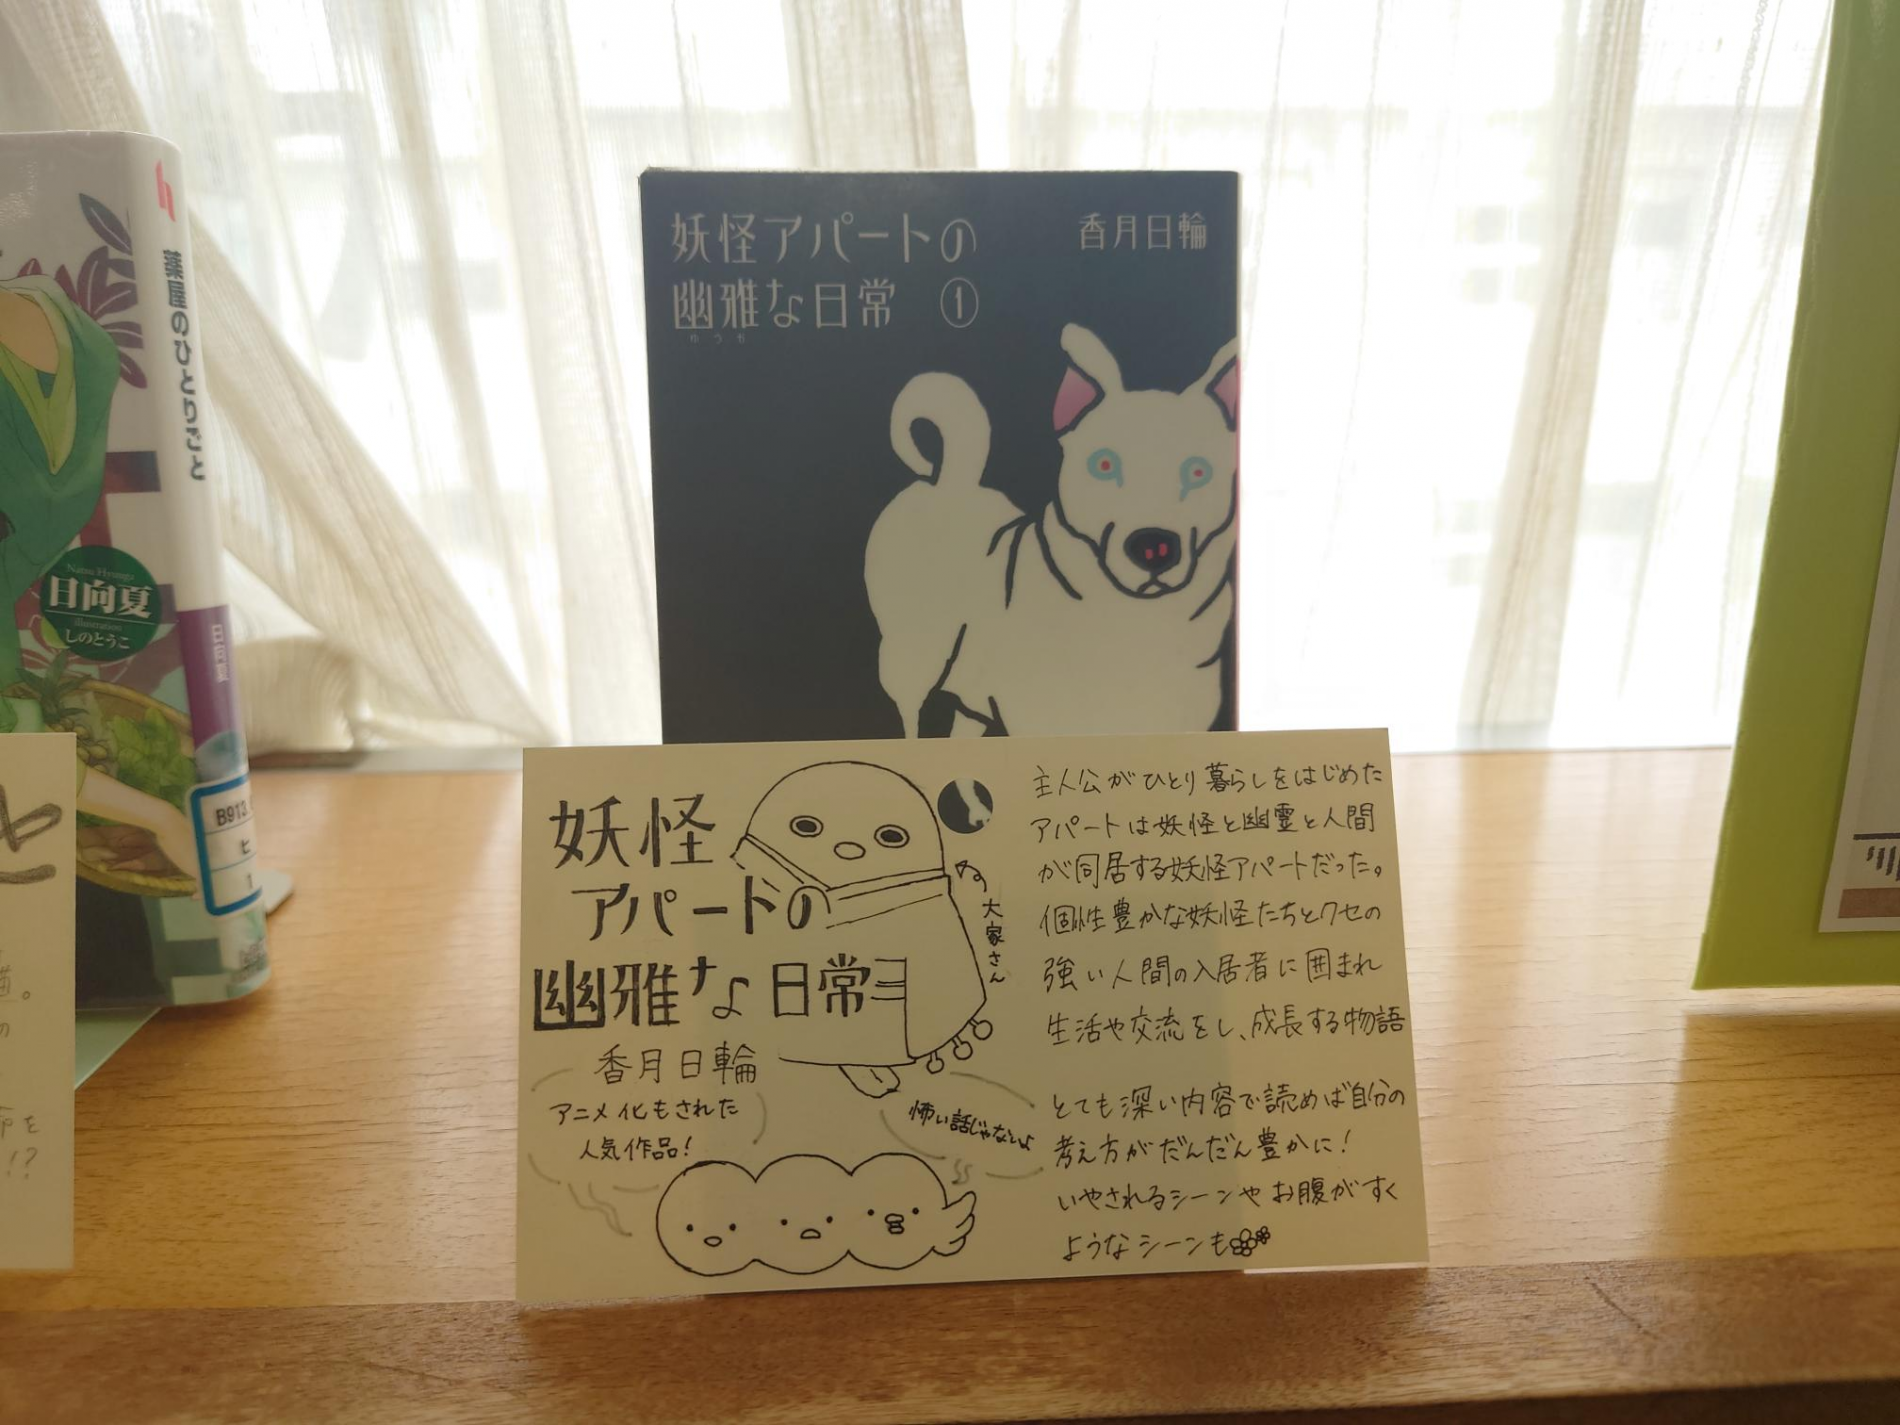 妖怪アパートの
幽雅な日常 ①
ゆうが
香月日輪
薬屋のひとりごと
Natsu Hyuuga
日向夏
illustration
しのとうこ
日向夏
B913.
ヒ
1
妖怪
アパートの
幽雅な日常
香月日輪
アニメ化もされた
人気作品!
大家さん
怖い話じゃないよ
主人公がひとり暮らしをはじめた
アパートは妖怪と幽霊と人間
が同居する妖怪アパートだった。
個性豊かな妖怪たちとクセの
強い人間の入居者に囲まれ
生活や交流をし、成長する物語
とても深い内容で読めば自分の
考え方がだんだん豊かに!
いやされるシーンやお腹がすく
ようなシーンも
と
。
の
を
!?